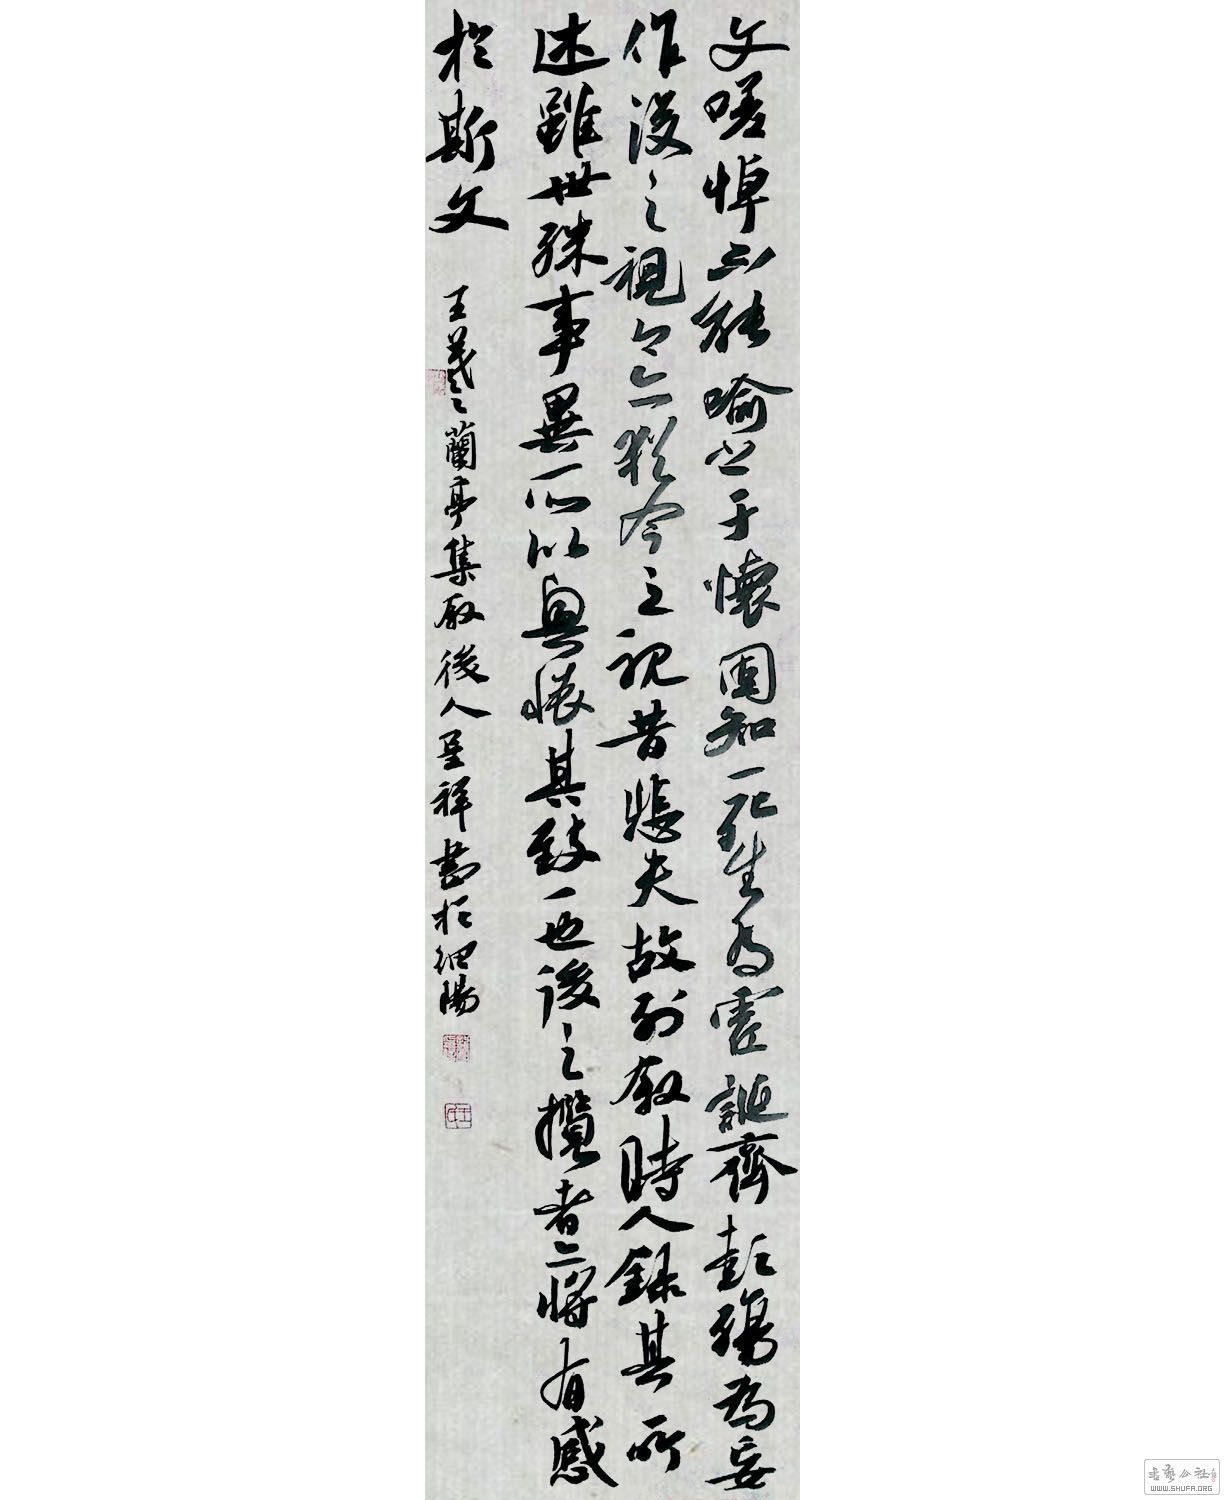 文嗟悼不能喻之于懷固知一死生為虛誕齊彭殤為妄
作後之視今亦猶今之視昔悲夫故列敘時人錄其所
述雖世殊事異所以興懷其致一也後之攬者亦將有感
於斯文
王羲之蘭亭集敘後人呈祥書於細陽
書藝公社
WWW.SHUFA.ORG